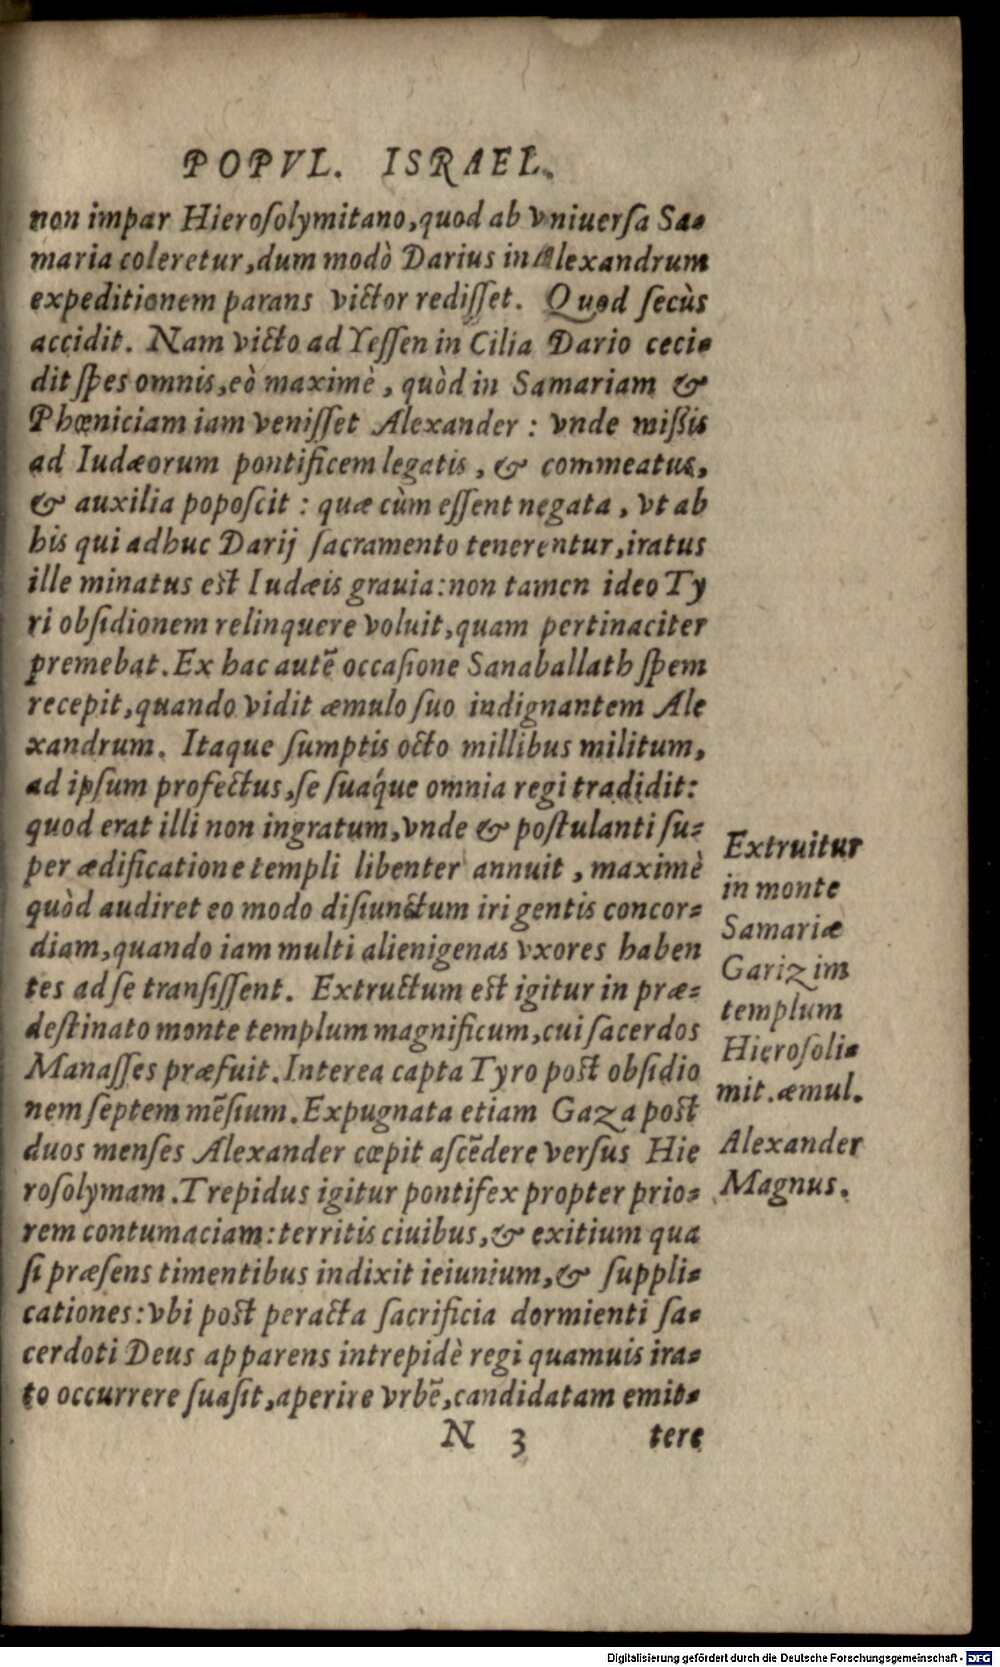 POPVL. ISRAEL.
non impar Hierosolymitano, quod ab vniuersa Sa-
maria coleretur, dum modò Darius in Alexandrum
expeditionem parans victor redisset. Quod secùs
accidit. Nam victo ad Yessen in Cilia Dario ceci-
dit spes omnis, eò maximè, quòd in Samariam &
Phœniciam iam venisset Alexander: vnde missis
ad Iudæorum pontificem legatis, & commeatus,
& auxilia poposcit: quæ cùm essent negata, vt ab
his qui adhuc Darij sacramento tenerentur, iratus
ille minatus est Iudæis grauia: non tamen ideo Ty
ri obsidionem relinquere voluit, quam pertinaciter
premebat. Ex hac autē occasione Sanaballath spem
recepit, quando vidit æmulo suo indignantem Ale
xandrum. Itaque sumptis octo millibus militum,
ad ipsum profectus, se suaq́ue omnia regi tradidit:
quod erat illi non ingratum, vnde & postulanti su-
per ædificatione templi libenter annuit, maximè
quòd audiret eo modo disiunctum iri gentis concor-
diam, quando iam multi alienigenas vxores haben
tes ad se transissent. Extructum est igitur in præ-
destinato monte templum magnificum, cui sacerdos
Manasses præfuit. Interea capta Tyro post obsidio
nem septem mēsium. Expugnata etiam Gaza post
duos menses Alexander cœpit ascēdere versus Hie
rosolymam. Trepidus igitur pontifex propter prio-
rem contumaciam: territis ciuibus, & exitium qua
si præsens timentibus indixit ieiunium, & suppli-
cationes: vbi post peracta sacrificia dormienti sa-
cerdoti Deus apparens intrepidè regi quamuis ira-
to occurrere suasit, aperire vrbē, candidatam emit-
N 3 tere
Extruitur
in monte
Samariæ
Garizim
templum
Hierosoli-
mit. æmul.
Alexander
Magnus.
Digitalisierung gefördert durch die Deutsche Forschungsgemeinschaft - DFG